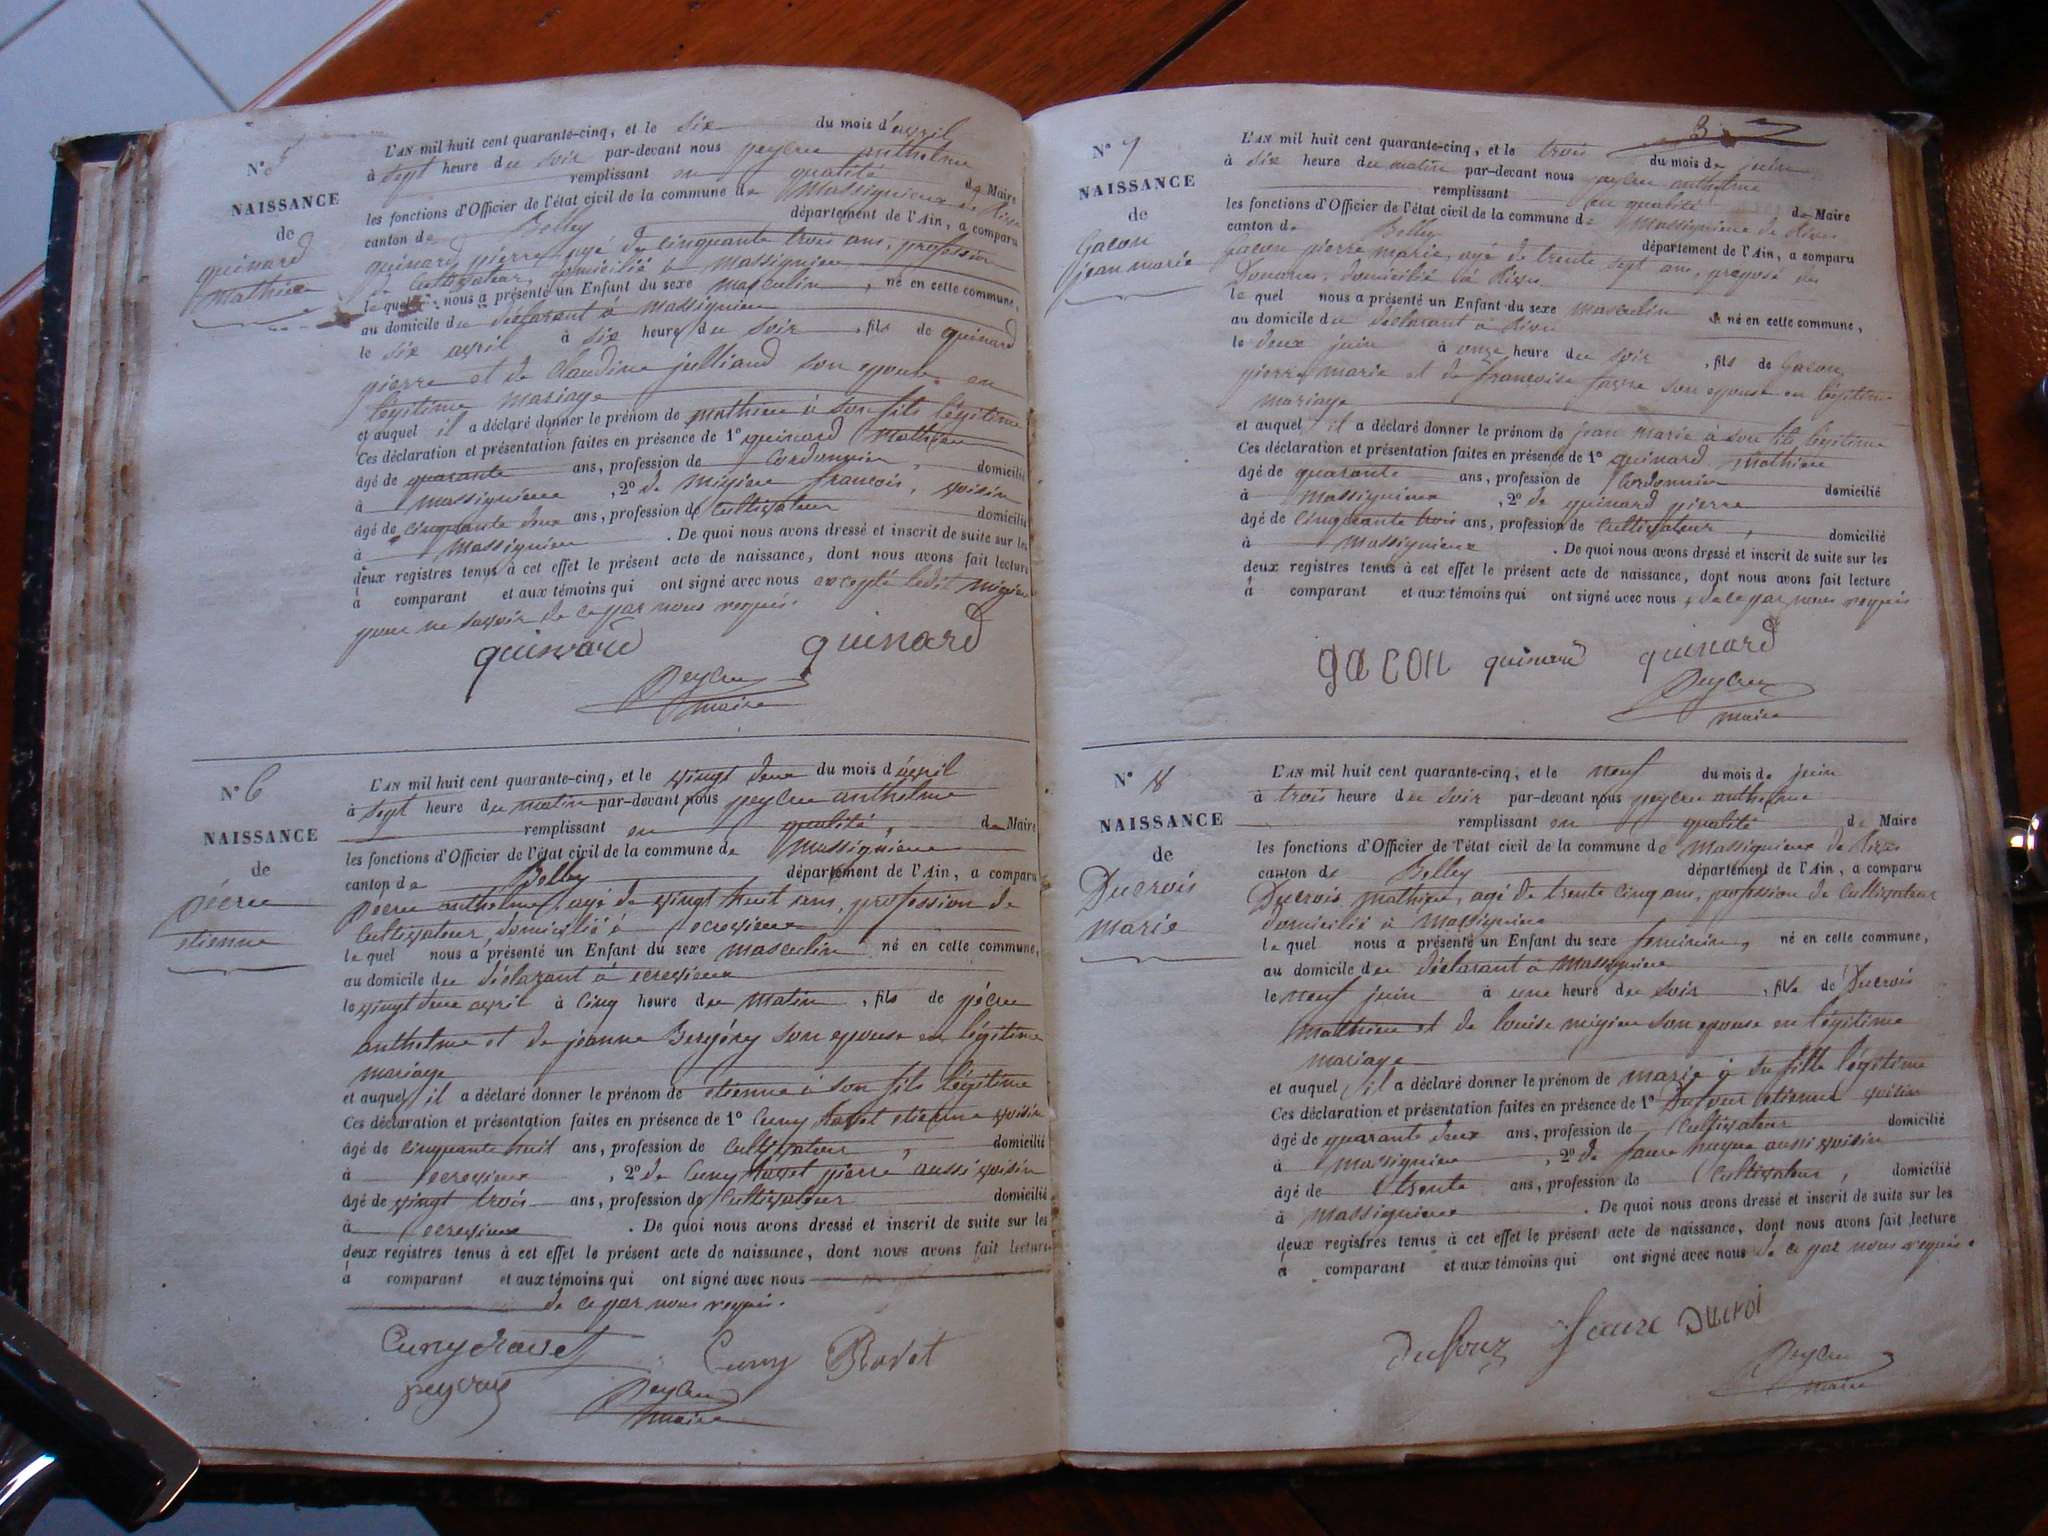 N° 5
NAISSANCE
de
quinard
mathieu
L'AN mil huit cent quarante-cinq, et le six du mois d'avril
à sept heure du soir par-devant nous peycru anthelme
remplissant en qualité de Maire
les fonctions d'Officier de l'état civil de la commune de Massignieux de Rives
canton de Belley département de l'Ain, a comparu
quinard pierre, agé de cinquante trois ans, profession
de cultivateur, domicilié à massignieu
le quel nous a présenté un Enfant du sexe masculin, né en cette commune,
au domicile du déclarant à massignieu
le six avril à six heure du soir, fils de quinard
pierre et de Claudine julliand son epouse en
légitime mariage
et auquel il a déclaré donner le prénom de mathieu à son fils légitime
Ces déclaration et présentation faites en présence de 1° quinard Mathieu
âgé de quarante ans, profession de Cordonnier, domicilié
à massignieu, 2° de migieu francois, voisin
âgé de cinquante deux ans, profession de Cultivateur domicilié
à massignieu. De quoi nous avons dressé et inscrit de suite sur les
deux registres tenus à cet effet le présent acte de naissance, dont nous avons fait lecture
à comparant et aux témoins qui ont signé avec nous excepté ledit migieu
pour ne savoir de ce par nous requis.
quinard quinard
Peycru
maire
N° 6
NAISSANCE
de
pécru
etienne
L'AN mil huit cent quarante-cinq, et le vingt deux du mois d'avril
à sept heure du matin par-devant nous peycru anthelme
remplissant en qualité, de Maire
les fonctions d'Officier de l'état civil de la commune de Massignieu
canton de Belley département de l'Ain, a comparu
pecru anthelme, agé de vingt huit ans, profession de
Cultivateur, domicilié à ecrevieux
le quel nous a présenté un Enfant du sexe masculin né en cette commune,
au domicile du déclarant à ecrevieux
le vingt deux avril à Cinq heure du matin, fils de pécru
anthelme et de jeanne Bergérey son epouse en légitime
mariage
et auquel il a déclaré donner le prénom de etienne à son fils légitime
Ces déclaration et présentation faites en présence de 1° Cuny Ravet etienne voisin
âgé de cinquante huit ans, profession de Cultivateur, domicilié
à ecrevieux, 2° de Cuny Ravet pierre aussi voisin
âgé de vingt trois ans, profession de Cultivateur domicilié
à ecrevieux. De quoi nous avons dressé et inscrit de suite sur les
deux registres tenus à cet effet le présent acte de naissance, dont nous avons fait lecture
à comparant et aux témoins qui ont signé avec nous
de ce par nous requis.
Cuny Ravet Cuny Ravet
peycru Peycru
maire
3
N° 7
NAISSANCE
de
Gacon
jean marie
L'AN mil huit cent quarante-cinq, et le trois du mois de juin
à six heure du matin par-devant nous peycru anthelme
remplissant en qualité de Maire
les fonctions d'Officier de l'état civil de la commune de Massignieux de Rives
canton de Belley département de l'Ain, a comparu
gacon pierre marie, agé de trente sept ans, preposé des
Douanes, domicilié à Rives
le quel nous a présenté un Enfant du sexe masculin né en cette commune,
au domicile du déclarant à Rives
le deux juin à onze heure du soir, fils de Gacon
pierre marie et de francoise favre son epouse en légitime
mariage
et auquel il a déclaré donner le prénom de jean marie à son fils légitime
Ces déclaration et présentation faites en présence de 1° quinard Mathieu
âgé de quarante ans, profession de Cordonnier domicilié
à Massignieux, 2° de quinard pierre
âgé de Cinquante trois ans, profession de Cultivateur, domicilié
à massignieux. De quoi nous avons dressé et inscrit de suite sur les
deux registres tenus à cet effet le présent acte de naissance, dont nous avons fait lecture
à comparant et aux témoins qui ont signé avec nous, de ce par nous requis
gacon quinard quinard
Peycru
maire
N° 8
NAISSANCE
de
Ducrois
marie
L'AN mil huit cent quarante-cinq, et le neuf du mois de juin
à trois heure du soir par-devant nous peycru anthelme
remplissant en qualité de Maire
les fonctions d'Officier de l'état civil de la commune de Massignieux de Rives
canton de Belley département de l'Ain, a comparu
Ducrois mathieu, agé de trente cinq ans, profession de Cultivateur
domicilié à massignieu
le quel nous a présenté un Enfant du sexe feminin, né en cette commune,
au domicile du déclarant à massignieu
le neuf juin à une heure du soir, fille de Ducrois
mathieu et de louise migieu son epouse en légitime
mariage
et auquel il a déclaré donner le prénom de marie à sa fille légitime
Ces déclaration et présentation faites en présence de 1° Dufour etienne voisin
âgé de quarante deux ans, profession de Cultivateur domicilié
à massignieu, 2° de faure aussi voisin
âgé de trente ans, profession de Cultivateur, domicilié
à massignieu. De quoi nous avons dressé et inscrit de suite sur les
deux registres tenus à cet effet le présent acte de naissance, dont nous avons fait lecture
à comparant et aux témoins qui ont signé avec nous de ce par nous requis.
Dufour faure Ducroi
Peycru
maire